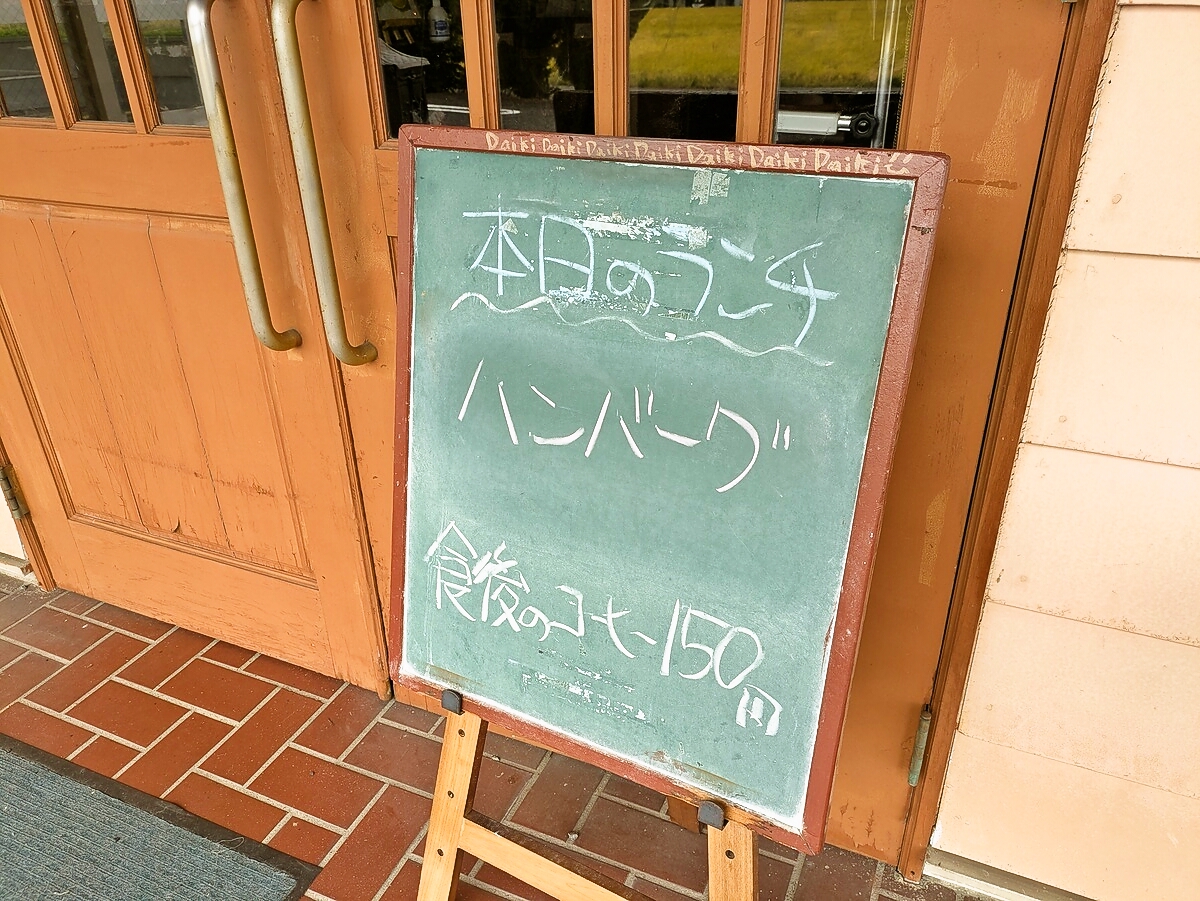 Daiki Daiki Daiki Daiki Daiki Daiki Daiki
本日のランチ
ハンバーグ
食後のコーヒー150円